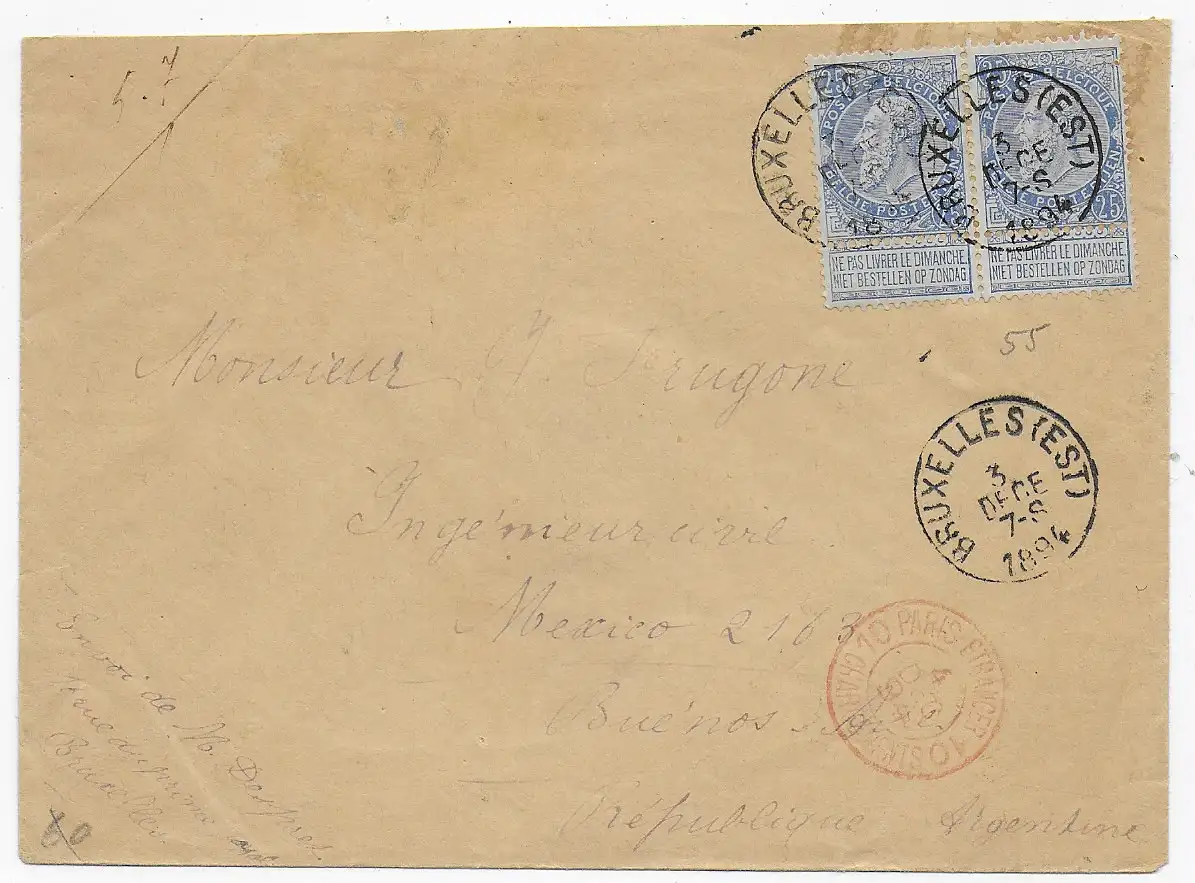 5.7
25 POSTES BELGIQUE
BELGIE POSTERIJEN 25
NE PAS LIVRER LE DIMANCHE
NIET BESTELLEN OP ZONDAG
POSTES BELGIQUE
25
NE PAS LIVRER LE DIMANCHE
NIET BESTELLEN OP ZONDAG
BRUXELLES
18
BRUXELLES (EST)
3
DECE
7-S
1894
55
Monsieur Frugone
Ingénieur civil
Mexico 2163
Buénos
République Argentine
BRUXELLES (EST)
3
DECE
7-S
1894
10 PARIS ETRANGER 10
4
94
Envoi de M. Despret
rue du
Bruxelles
60